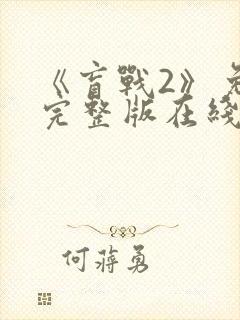 《盲戰2》免
完整版在綫
何蔣勇